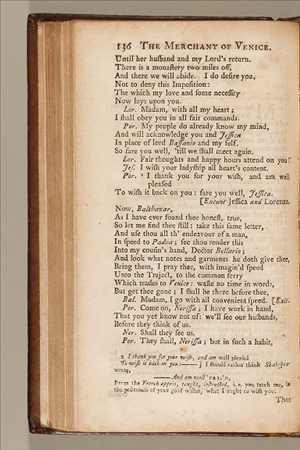 136 THE MERCHANT OF VENICE.
Until her husband and my Lord's return.
There is a monastery two miles off,
And there we will abide. I do desire you,
Not to deny this Imposition:
The which my love and some necessity
Now lays upon you.
Lor. Madam, with all my heart;
I shall obey you in all fair commands.
Por. My people do already know my mind,
And will acknowledge you and Jessica
In place of lord Bassanio and my self.
So fare you well, 'till we shall meet again.
Lor. Fair thoughts and happy hours attend on you!
Jes. I wish your ladyship all heart's content.
Por. I thank you for your wish, and am well
pleased
To wish it back on you: fare you well, Jessica.
[Exeunt Jessica and Lorenzo.
Now, Balthazar,
As I have ever found thee honest, true,
So let me find thee still: take this same letter,
And use thou all th' endeavour of a man,
In speed to Padua; see thou render this
Into my cousin's hand, Doctor Bellario;
And look what notes and garments he doth give thee,
Bring them, I pray thee, with imagin'd speed
Unto the Traject, to the common ferry
Which trades to Venice: waste no time in words,
But get thee gone; I shall be there before thee.
Bal. Madam, I go with all convenient speed. [Exit.
Por. Come on, Nerissa; I have work in hand,
That you yet know not of: we'll see our husbands,
Before they think of us.
Ner. Shall they see us.
Por. They shall, Nerissa; but in such a habit,
I thank you for your wish, and am well pleased
To wish it back on you] I should rather think Shakespear
wrote,
And am well
From the French appris, taught, instructed, i.e. you teach me, in
the politeness of your good wishes, what I ought to wish you.
That